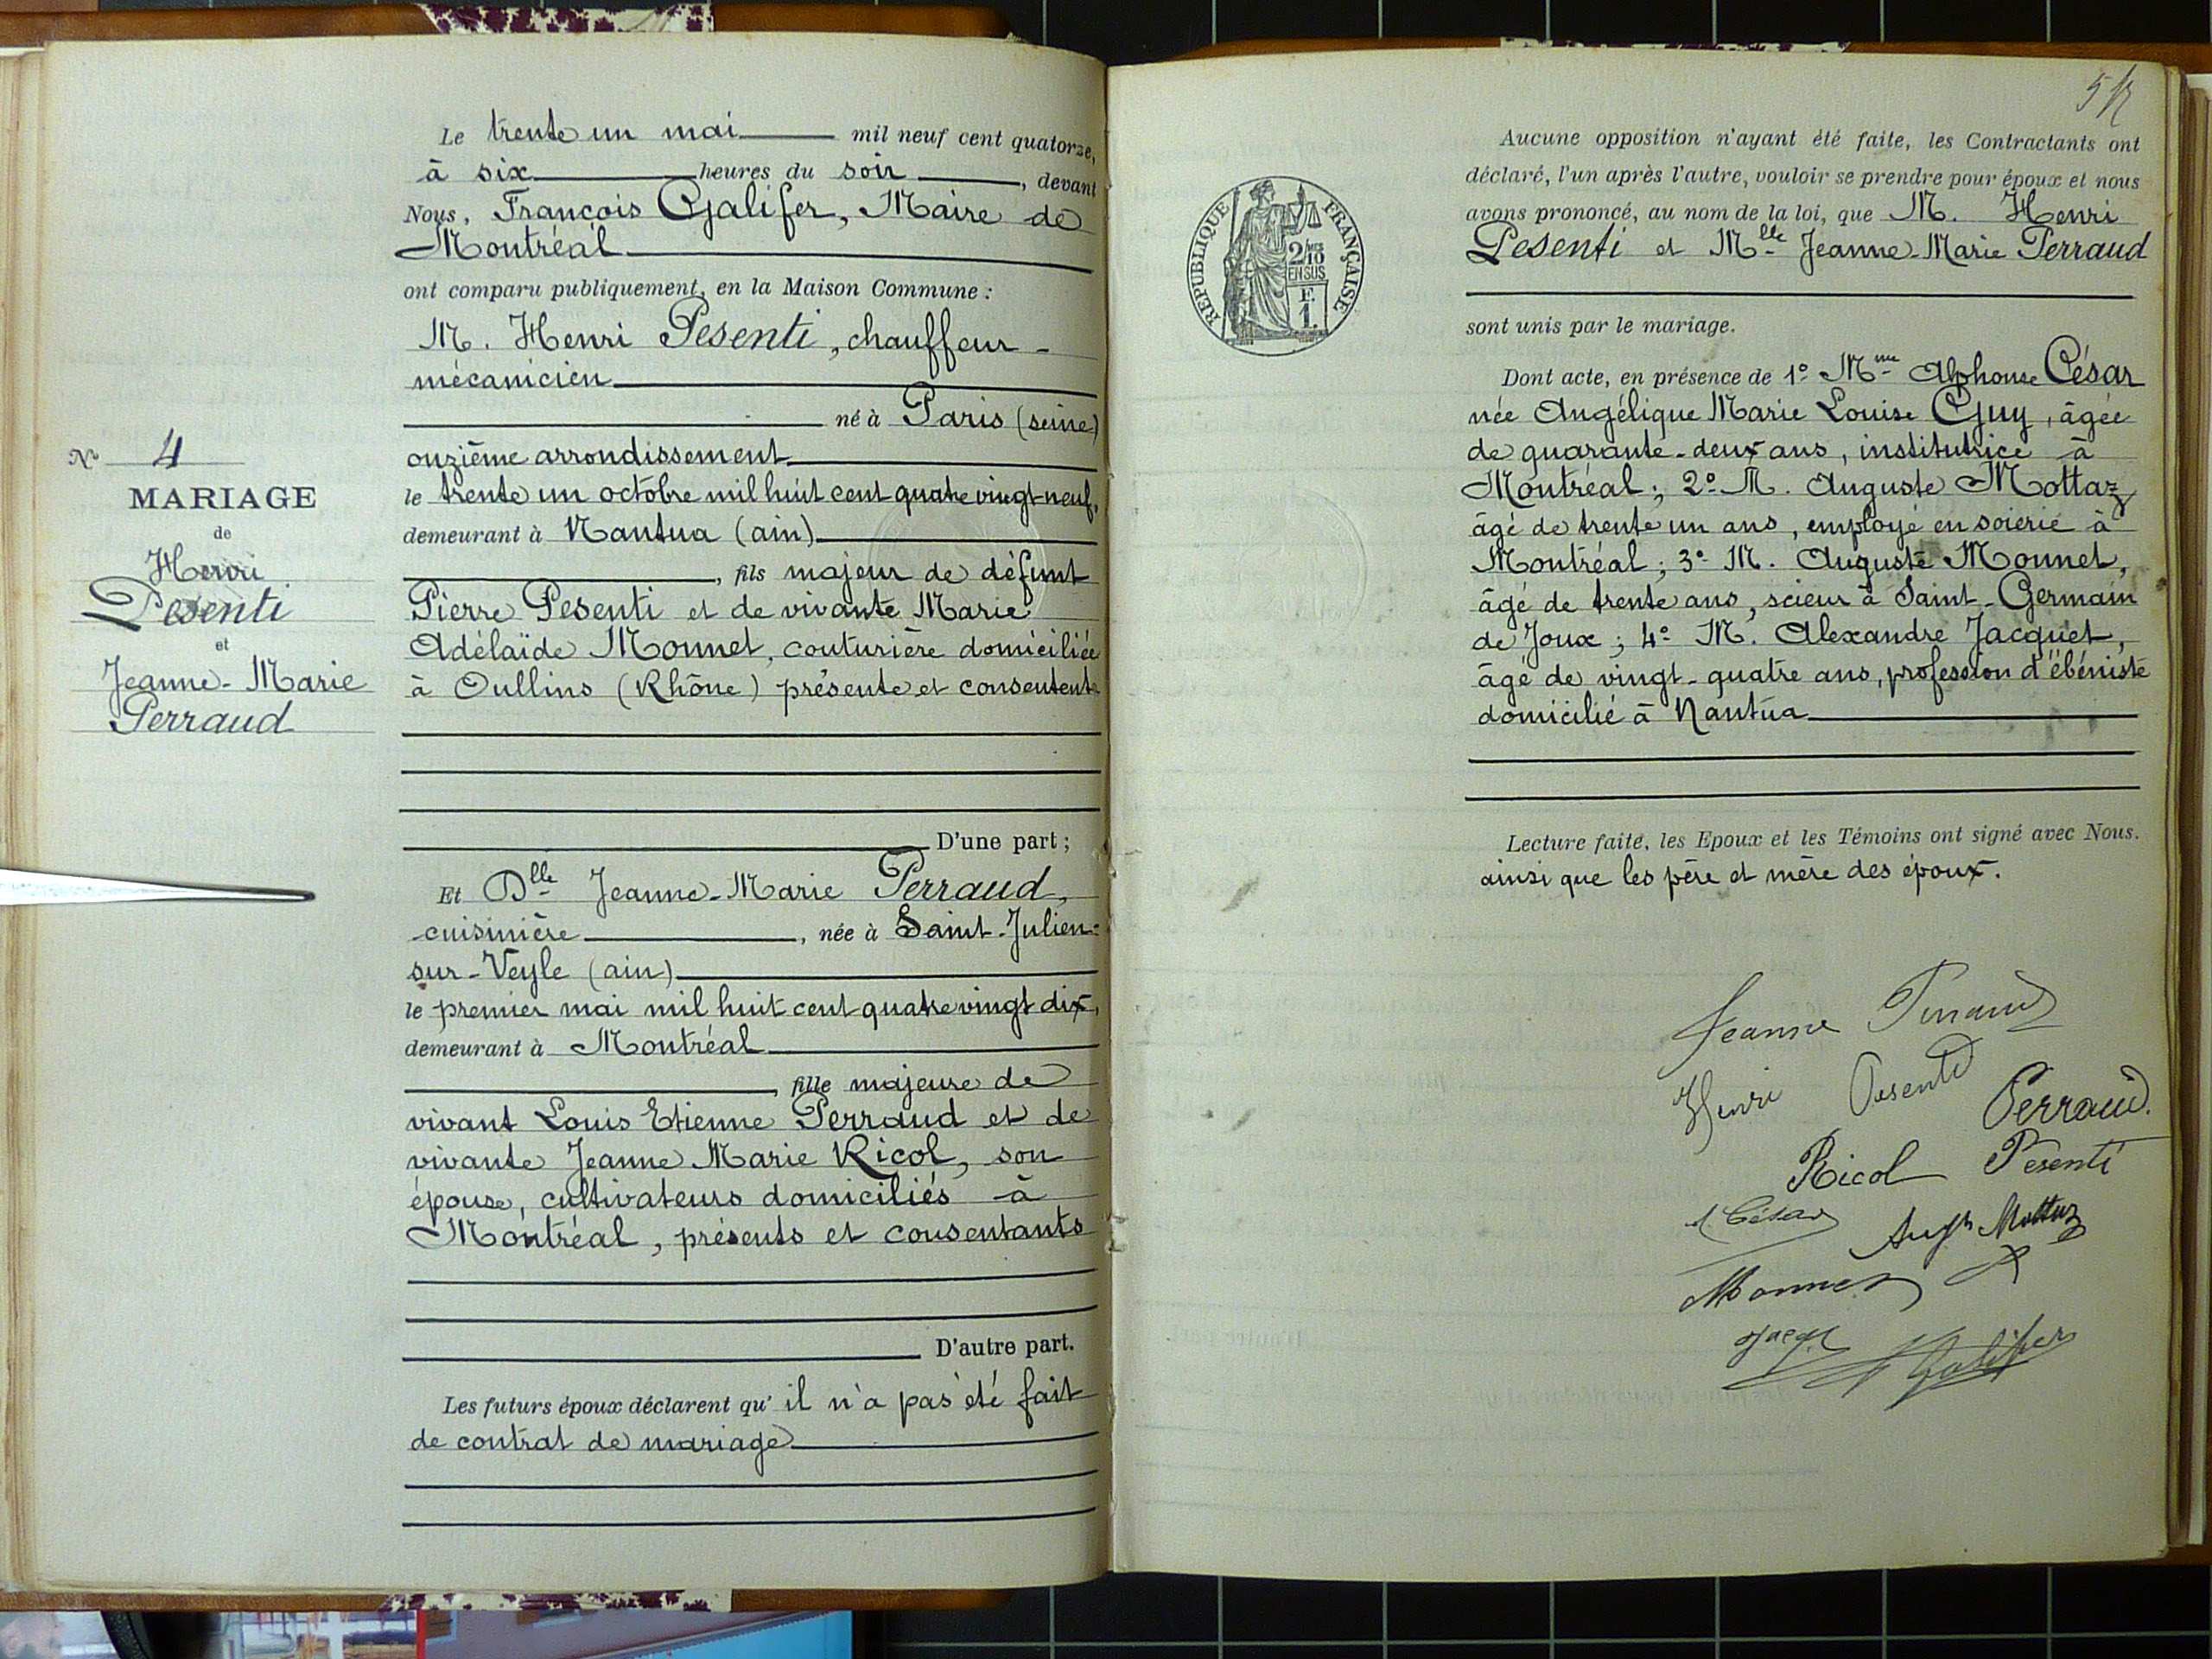 Nº 4
MARIAGE
de
Henri
Pesenti
et
Jeanne-Marie
Perraud
Le trente un mai mil neuf cent quatorze,
à six heures du soir, devant
Nous, François Galifer, Maire de
Montréal
ont comparu publiquement, en la Maison Commune :
M. Henri Pesenti, chauffeur-
mécanicien
né à Paris (seine)
onzième arrondissement
le trente un octobre mil huit cent quatre vingt-neuf,
demeurant à Nantua (ain)
, fils majeur de défunt
Pierre Pesenti et de vivante Marie
Adélaïde Monnet, couturière domiciliée
à Oullins (Rhône) présente et consentente
D'une part ;
Et Dlle Jeanne-Marie Perraud,
cuisinière, née à Saint-Julien-
sur-Veyle (ain)
le premier mai mil huit cent quatre vingt dix,
demeurant à Montréal
, fille majeure de
vivant Louis Etienne Perraud et de
vivante Jeanne Marie Ricol, son
épouse, cultivateurs domiciliés à
Montréal, présents et consentants
D'autre part.
Les futurs époux déclarent qu'il n'a pas été fait
de contrat de mariage
RÉPUBLIQUE FRANÇAISE
2/10 MES
EN SUS
F.
1.
Aucune opposition n'ayant été faite, les Contractants ont
déclaré, l'un après l'autre, vouloir se prendre pour époux et nous
avons prononcé, au nom de la loi, que M. Henri
Pesenti et Mlle Jeanne-Marie Perraud
sont unis par le mariage.
Dont acte, en présence de 1º Mme Alphonse César
née Angélique Marie Louise Guy, âgée
de quarante-deux ans, institutrice à
Montréal; 2º M. Auguste Mottaz
âgé de trente un ans, employé en soierie à
Montréal; 3º M. Auguste Monnet,
âgé de trente ans, scieur à Saint-Germain
de Joux; 4º M. Alexandre Jacquet,
âgé de vingt-quatre ans, profession d'ébéniste
domicilié à Nantua
Lecture faite, les Epoux et les Témoins ont signé avec Nous.
ainsi que les père et mère des époux.
Jeanne Perraud
Henri Pesenti
Perraud.
Ricol Pesenti
A César
Augte Mottaz
Monnet
Galifer